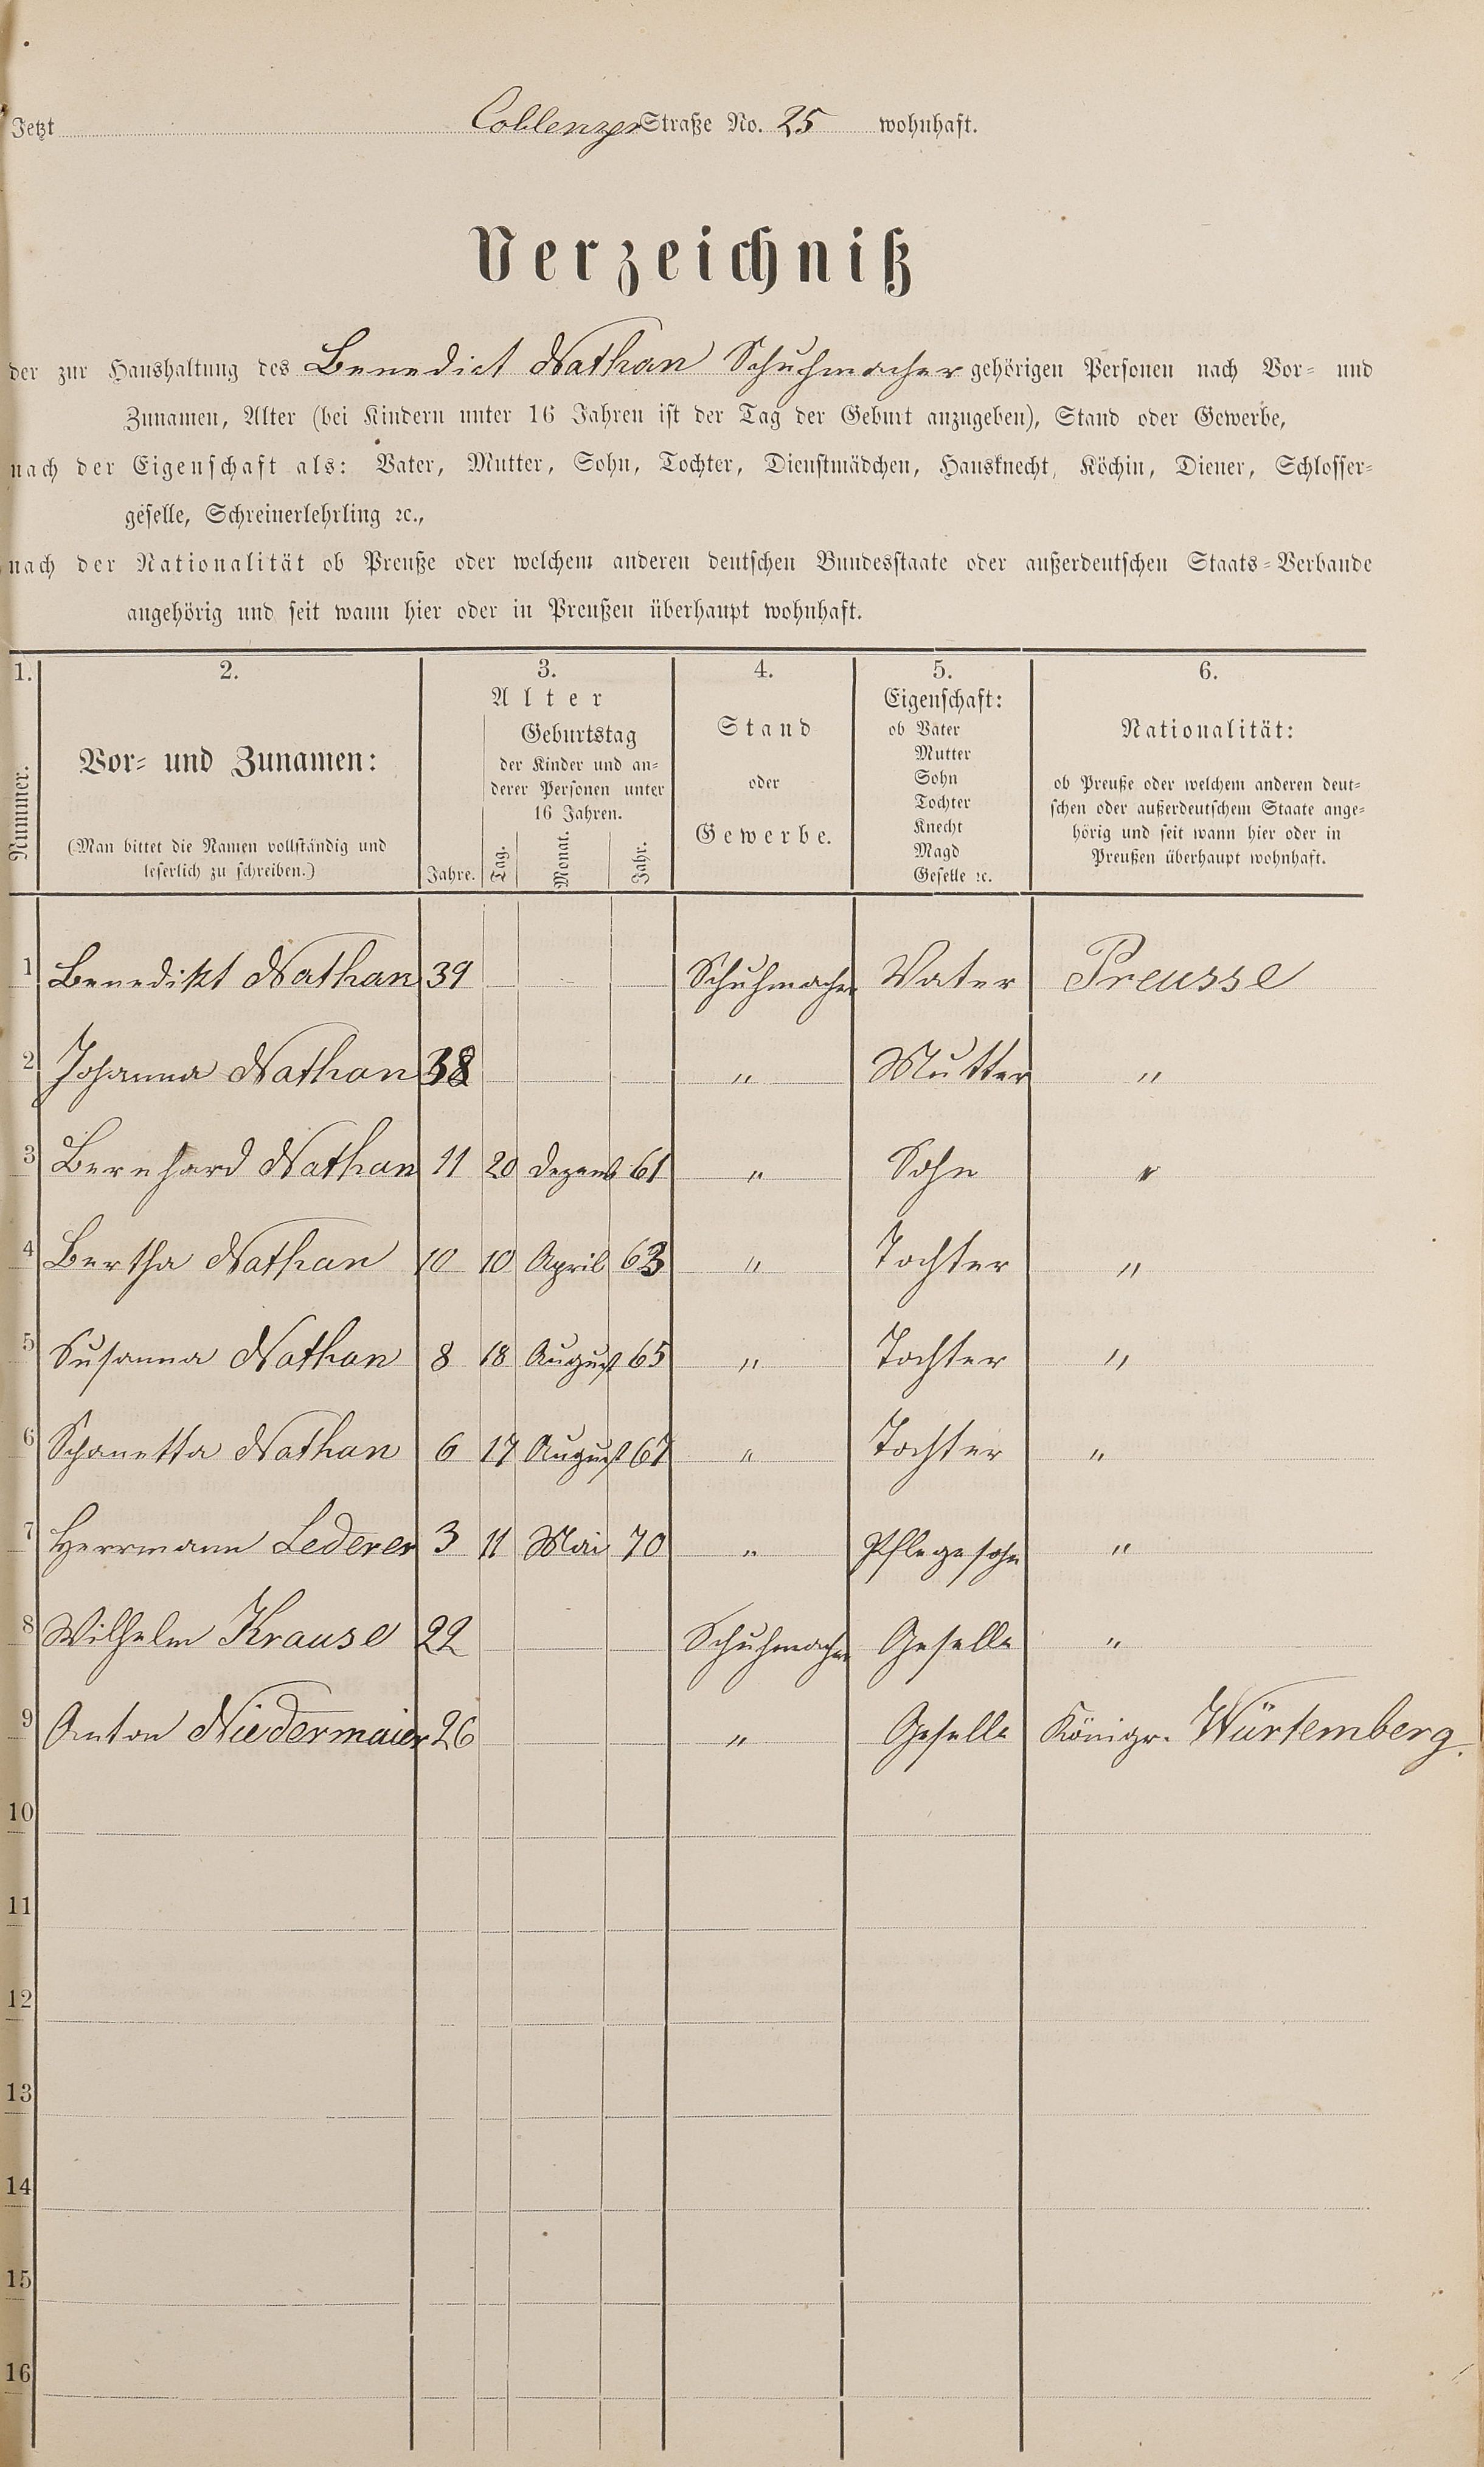 Jetzt Coblenzer Straße No. 25 wohnhaft.
Verzeichniß
der zur Haushaltung des Benedict Nathan Schuhmacher gehörigen Personen nach Vor= und
Zunamen, Alter (bei Kindern unter 16 Jahren ist der Tag der Geburt anzugeben), Stand oder Gewerbe,
nach der Eigenschaft als: Vater, Mutter, Sohn, Tochter, Dienstmädchen, Hausknecht, Köchin, Diener, Schlosser=
geselle, Schreinerlehrling ꝛc.,
nach der Nationalität ob Preuße oder welchem anderen deutschen Bundesstaate oder außerdeutschen Staats=Verbande
angehörig und seit wann hier oder in Preußen überhaupt wohnhaft.
1.
Nummer.
2.
Vor= und Zunamen:
(Man bittet die Namen vollständig und
leserlich zu schreiben.)
3.
Alter
Jahre.
Geburtstag
der Kinder und an=
derer Personen unter
16 Jahren.
Tag.
Monat.
Jahr.
4.
Stand
oder
Gewerbe.
5.
Eigenschaft:
ob Vater
Mutter
Sohn
Tochter
Knecht
Magd
Geselle ꝛc.
6.
Nationalität:
ob Preuße oder welchem anderen deut=
schen oder außerdeutschem Staate ange=
hörig und seit wann hier oder in
Preußen überhaupt wohnhaft.
1 Benedikt Nathan 39 Schuhmacher Vater Preusse
2 Johanna Nathan 38 " Mutter "
3 Bernhard Nathan 11 20 Dezemb 61 " Sohn "
4 Bertha Nathan 10 10 April 63 " Tochter "
5 Susanna Nathan 8 18 August 65 " Tochter "
6 Schanetta Nathan 6 17 August 67 " Tochter "
7 Herrmann Lederer 3 11 Mai 70 " Pflegesohn "
8 Wilhelm Krause 22 Schuhmacher Geselle "
9 Anton Niedermaier 26 " Geselle Königr. Würtemberg.
10
11
12
13
14
15
16